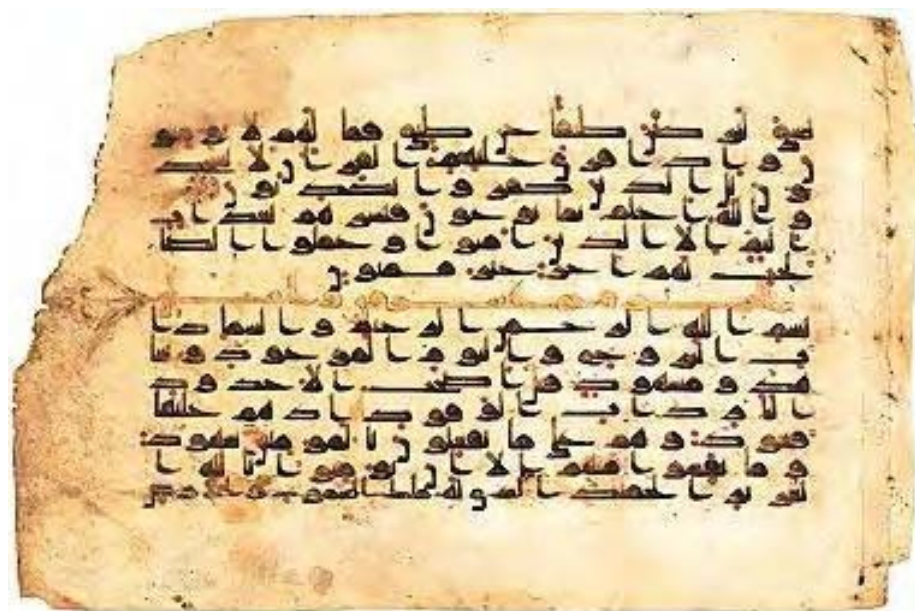 تسق لتركبن طبقا عن طبق فما لهم لا يومنو
ن واذا قرى عليهم القران لا يسجد
ون بل الذين كفروا يكذبون
والله اعلم بما يوعون فبشرهم بعذاب ا
ليم الا الذين امنوا وعملوا الصا
لحت لهم اجر غير ممنون
بسم الله الرحمن الرحيم والسما ذا
ت البروج واليوم الموعود وشا
هد ومشهود قتل اصحب الاخدود
النار ذات الوقود اذ هم عليها
قعود وهم على ما يفعلون بالمومنين شهود
وما نقموا منهم الا ان يومنوا بالله ا
لعزيز الحميد الذي له ملك السموت والارض